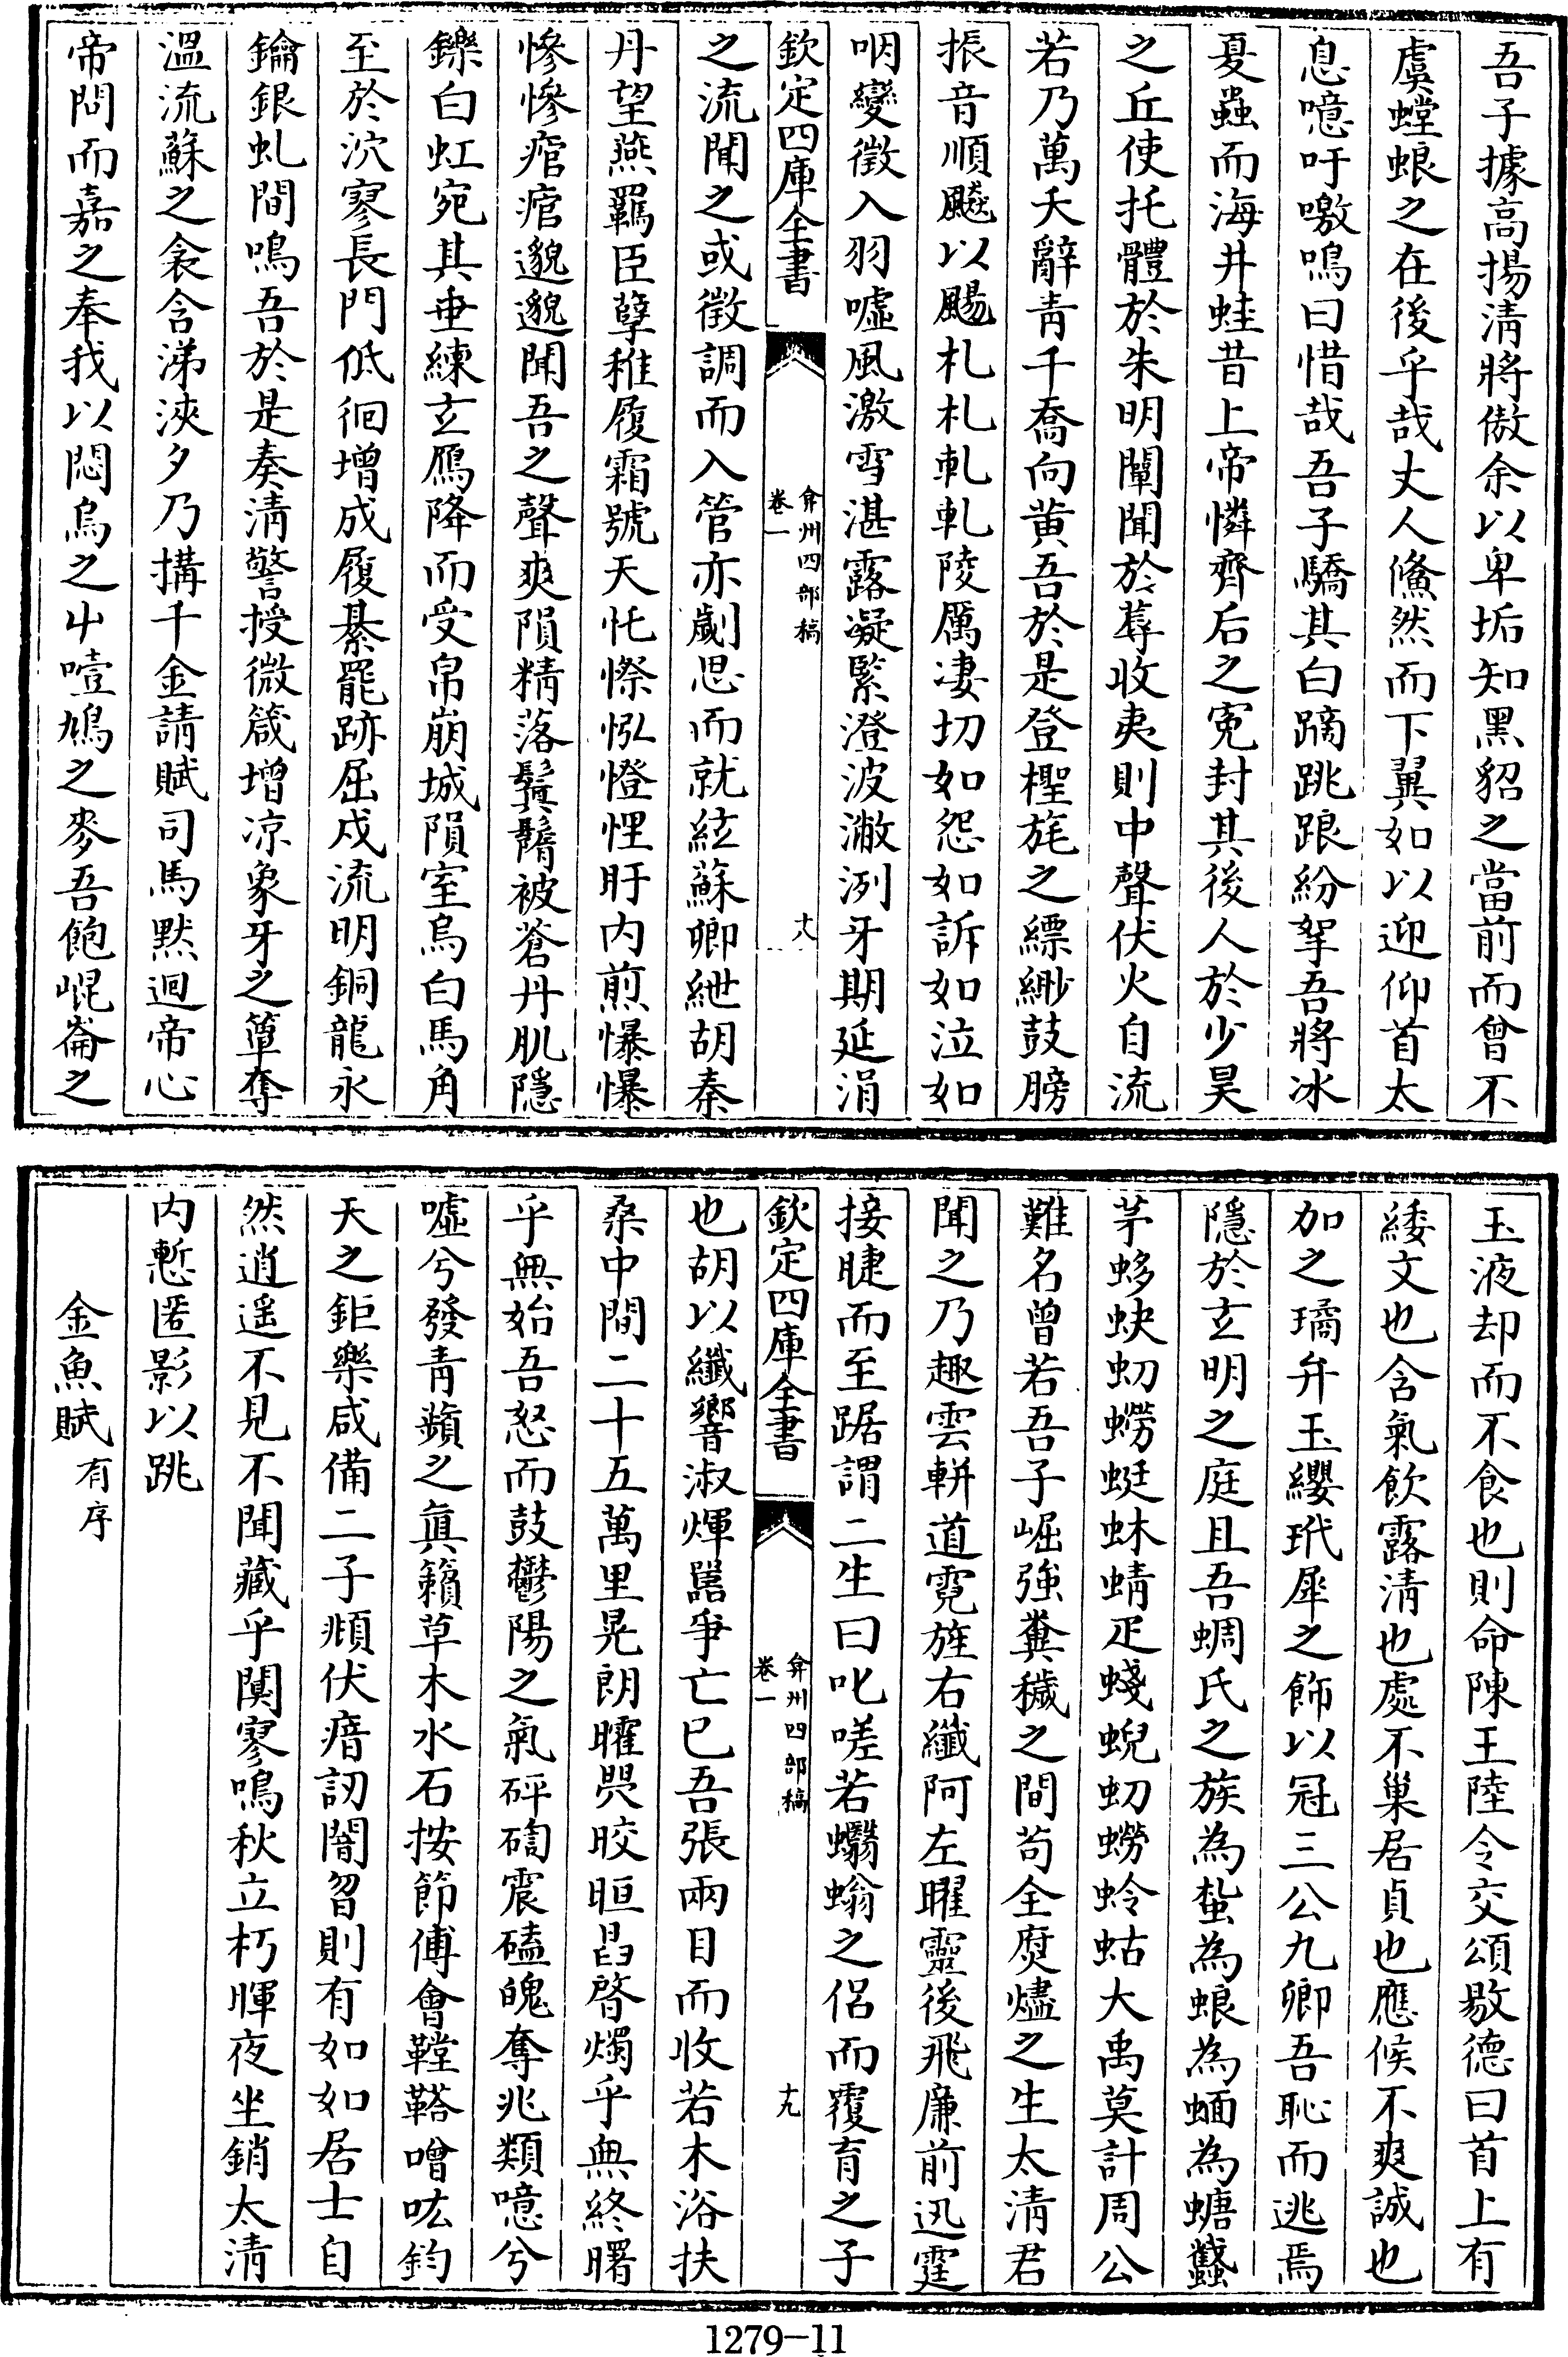 吾子據高揚清將傲余以卑垢知黑貂之當前而曾不
虞螳蜋之在後乎哉丈人翛然而下翼如以迎仰首太
息噫吁噭鳴曰惜哉吾子驕其白蹢跳踉紛挐吾將冰
夏蟲而海井蛙昔上帝憐齊后之寃封其後人於少昊
之丘使托體於朱明闡聞於蓐收夷則中聲伏火自流
若乃萬夭辭青千喬向黄吾於是登檉旄之縹緲鼓膀
振音順飈以颺札札軋軋陵厲凄切如怨如訴如泣如
咽變徵入羽噓風激雪湛露凝緊澄波潎洌牙期延涓
欽定四庫全書
弇州四部稿
卷一
十八
之流聞之或徵調而入管亦劌思而就絃蘇卿紲胡秦
丹望燕羈臣孽稚履霜號天忳憏怭憕悝盱内煎㦡㦡
慘慘痯痯邈邈聞吾之聲爽隕精落鬒鬋被蒼丹肌隱
鑠白虹宛其垂練玄鴈降而受帛崩城隕室烏白馬角
至於泬寥長門低徊增成履綦罷跡屈戍流明銅龍永
鑰銀虬間鳴吾於是奏清警授微箴增凉象牙之簟奪
溫流蘇之衾含涕浹夕乃搆千金請賦司馬黙迴帝心
帝問而嘉之奉我以閟烏之屮噎鳩之麥吾飽崐崙之
玉液却而不食也則命陳王陸令交頌敭德曰首上有
緌文也含氣飲露清也處不巢居貞也應候不爽誠也
加之璚弁玉纓玳犀之飾以冠三公九卿吾恥而逃焉
隱於玄明之庭且吾蜩氏之族為蚻為蜋為蝒為螗蠽
茅蛥蚗虭蟧蜓蚞蜻疋蟂蜺虭蟧蛉蛄大禹莫計周公
難名曾若吾子崛強糞穢之間苟全熒燼之生太清君
聞之乃趣雲軿道霓旌右纖阿左曜靈後飛廉前迅霆
接睫而至踞謂二生曰叱嗟若蠮螉之侶而覆育之子
欽定四庫全書
弇州四部稿
卷一
十九
也胡以纖響淑煇嚣爭亡已吾張兩目而收若木浴扶
桑中間二十五萬里晃朗曜炅晈晅晷晵燭乎無終曙
乎無始吾怒而鼓鬱陽之氣砰䃔震磕魄奪兆類噫兮
嘘兮發青蘋之眞籟草木水石按節傅會鞺鞳噌吰鈞
天之鉅樂咸備二子頫伏瘖訒闇曶則有如如居士自
然逍遥不見不聞藏乎闃寥鳴秋立朽暉夜坐銷太清
内慙匿影以跳
金魚賦有序
1279-11